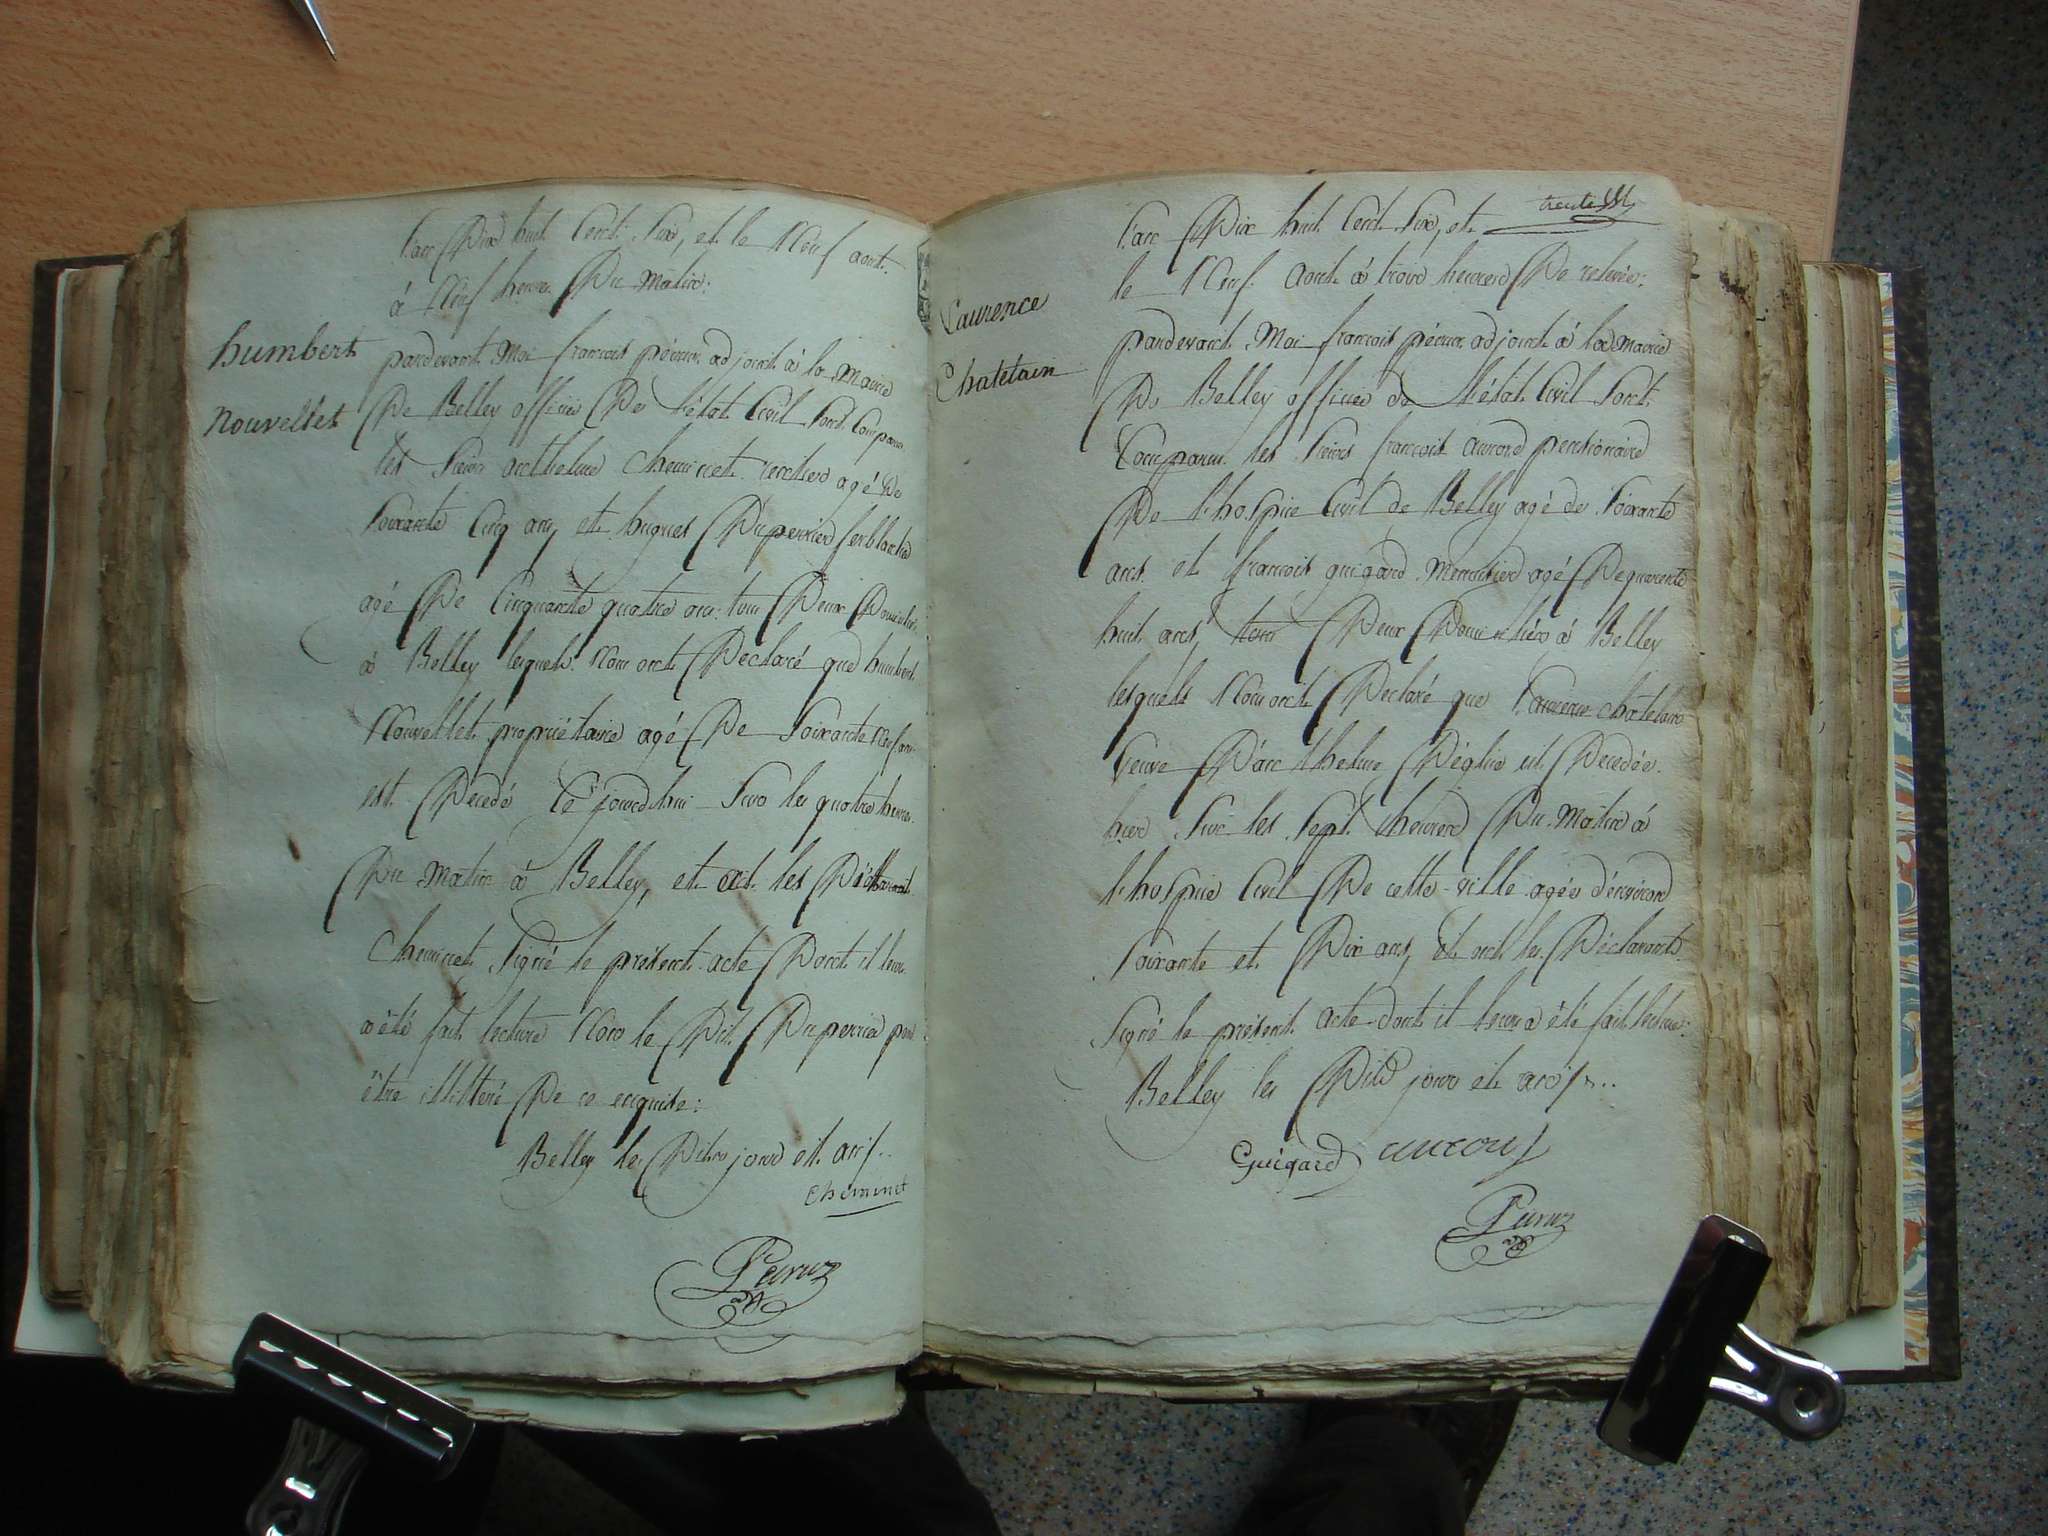 L'an Dix huit Cent Six, et le Neuf aout
à Neuf heures Du Matin:
humbert
Nouvellet
pardevant Moi francois péruz adjoint à la Mairie
De Belley officier De l'état Civil Sont Comparus
les Sieurs anthelme cheminet rentier agé De
Soixante Cinq ans, et hugues Duperrier ferblantier
agé De Cinquante quatre ans tous Deux Domiciliés
à Belley lesquels Nous ont Declaré que humbert
Nouvellet propriétaire agé De Soixante Neuf ans
est Decedé Ce jourdhui Sur les quatre heures
Du Matin à Belley, et ont les Déclarants
Cheminet Signé le présent acte Dont il leur
a été fait lecture Non le Dit Duperrier pour
être illitteré De ce enquis:
Belley les Dits jour et an
cheminet
Péruz
trente
L'an Dix huit Cent Six, et
le Neuf aout à trois heures De relevée:
Laurence
Chatelain
pardevant Moi francois péruz adjoint à la Mairie
De Belley officier de l'état Civil Sont
Comparus les Sieurs francois pensionnaire
De l'hospice Civil de Belley agé de Soixante
ans et francois guigard Menuisier agé De quarante
huit ans, tous Deux Domiciliés à Belley
lesquels Nous ont Declaré que Laurence chatelain
Veuve D'anthelme Déglise est Decedée
hier Sur les Sept heures Du Matin à
l'hospice Civil De cette ville agée d'environ
Soixante et Dix ans, et ont les Déclarants
Signé le présent acte dont il leur a été fait lecture:
Belley les Dits jour et an
Guigard
Péruz